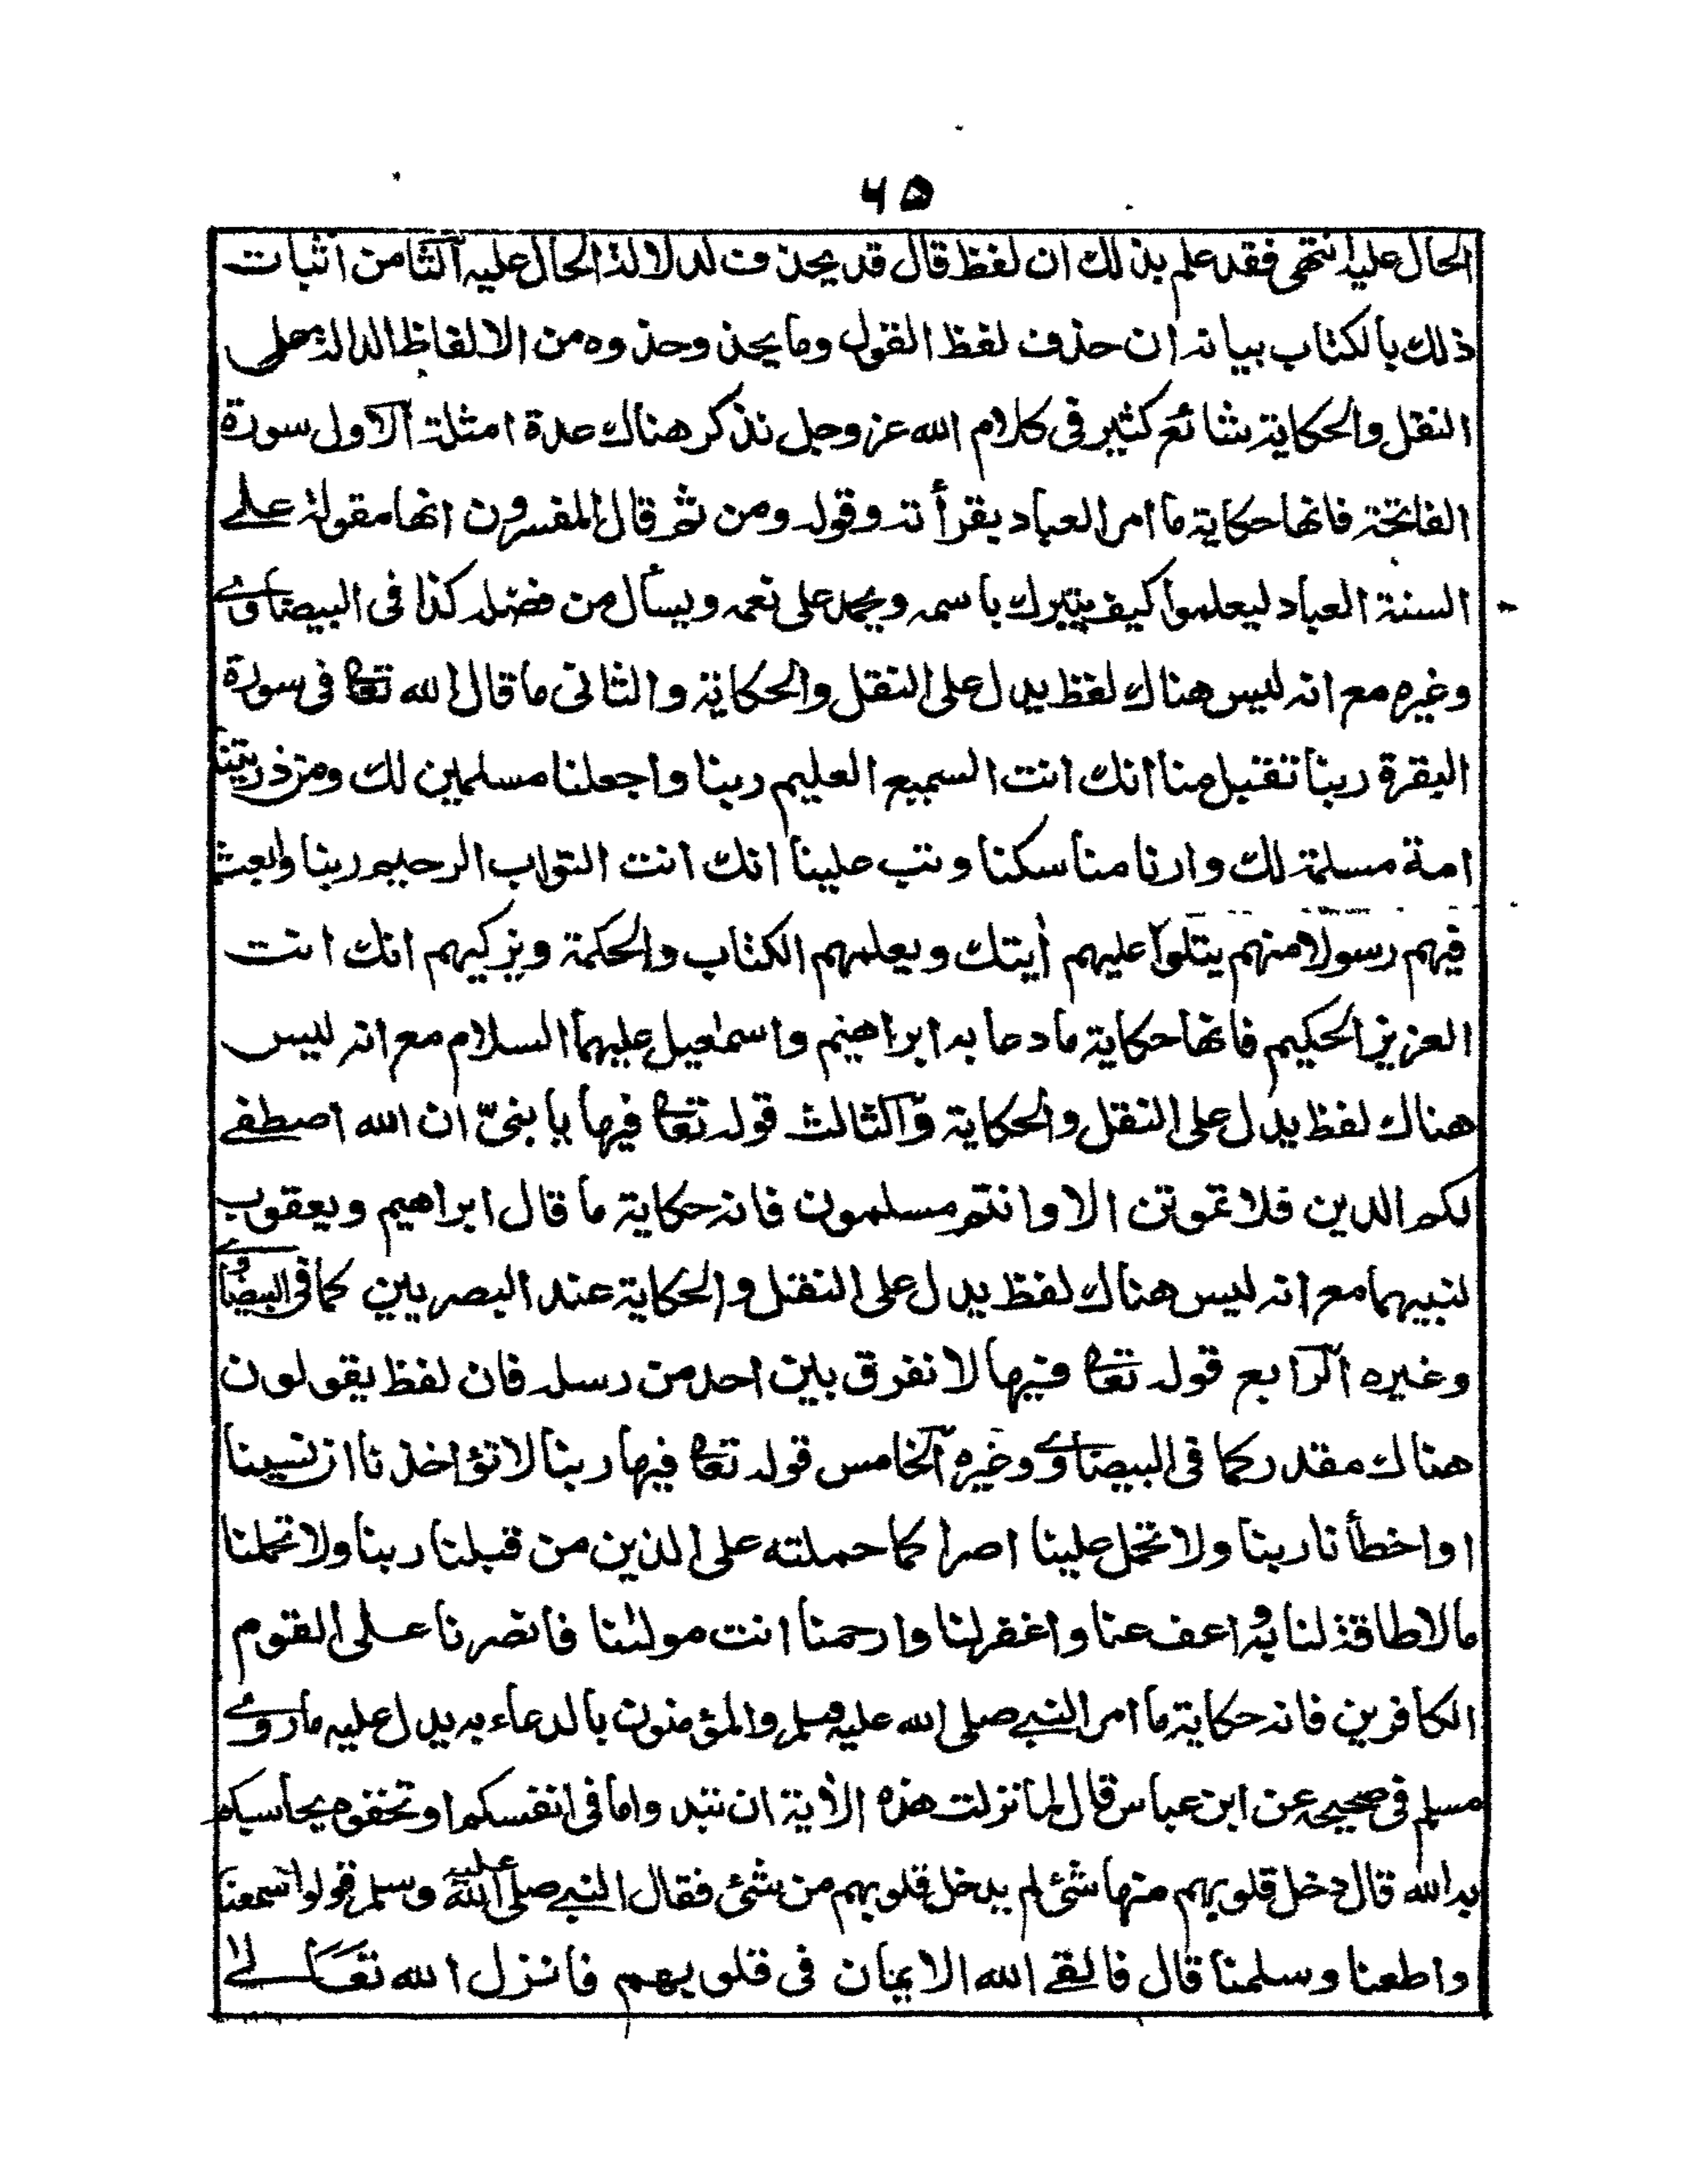 ۶۵
الحال علیہ انتهى فقد علم بذلك ان لفظ قال قد يحذف لدلالة الحال عليه الثامن اثبات
ذلك بالكتاب بيانه ان حذف لفظ القول وما يحذ وحذوه من الالفاظ الدالة على
النقل والحكاية شائع كثير فى كلام الله عز وجل نذكر هناك عدة امثلة الاول سورة
الفاتحة فانها حكاية ما امر العباد بقرأته وقوله ومن ثم قال المفسرون انها مقولة علے
السنة العباد ليعلموا كيف يتبرك باسمه ويحمد على نعمه ويسأل من فضله كذا فى البيضاوے
وغيره مع انه ليس هناك لفظ يدل على النقل والحكاية والثانى ما قال الله تعا فى سورة
البقرة ربنا تقبل منا انك انت السميع العليم ربنا واجعلنا مسلمين لك ومن ذريتنا
امة مسلمة لك وارنا مناسكنا وتب علينا انك انت التواب الرحيم ربنا وابعث
فيهم رسولا منهم يتلوا عليهم أيتك ويعلمهم الكتاب والحكمة ويزكيهم انك انت
العزيز الحكيم فانها حكاية ما دعا به ابراهيم واسمٰعيل عليهما السلام مع انه ليس
هناك لفظ يدل على النقل والحكاية والثالث قوله تعا فيها يا بنىّ ان الله اصطفے
لكم الدين فلا تموتن الا وانتم مسلمون فانه حكاية ما قال ابراهيم ويعقوب
لنبيهما مع انه ليس هناك لفظ يدل على النقل والحكاية عند البصريين كما فى البيضاوے
وغيره الرابع قوله تعا فيها لا نفرق بين احد من رسله فان لفظ يقولون
هناك مقدر كما فى البيضاوے وغيره الخامس قوله تعا فيها ربنا لا تؤاخذنا ان نسينا
او اخطأنا ربنا ولا تحمل علينا اصرا كما حملته على الذين من قبلنا ربنا ولا تحملنا
ما لا طاقة لنا به واعف عنا واغفر لنا وارحمنا انت مولٰنا فانصرنا على القوم
الكافرين فانه حكاية ما امر النبے صلى الله عليه وسلم والمؤمنون بالدعاء به يدل عليه ما روے
مسلم فى صحيحه عن ابن عباس قال لما نزلت هذه الأية ان تبدوا ما فى انفسكم او تخفوه يحاسبكم
به الله قال دخل قلوبهم منها شئ لم يدخل قلوبهم من شئ فقال النبے صلى الله عليه وسلم قولوا سمعنا
واطعنا وسلمنا قال فالقے الله الايمان فى قلوبهم فانزل الله تعالےٰ